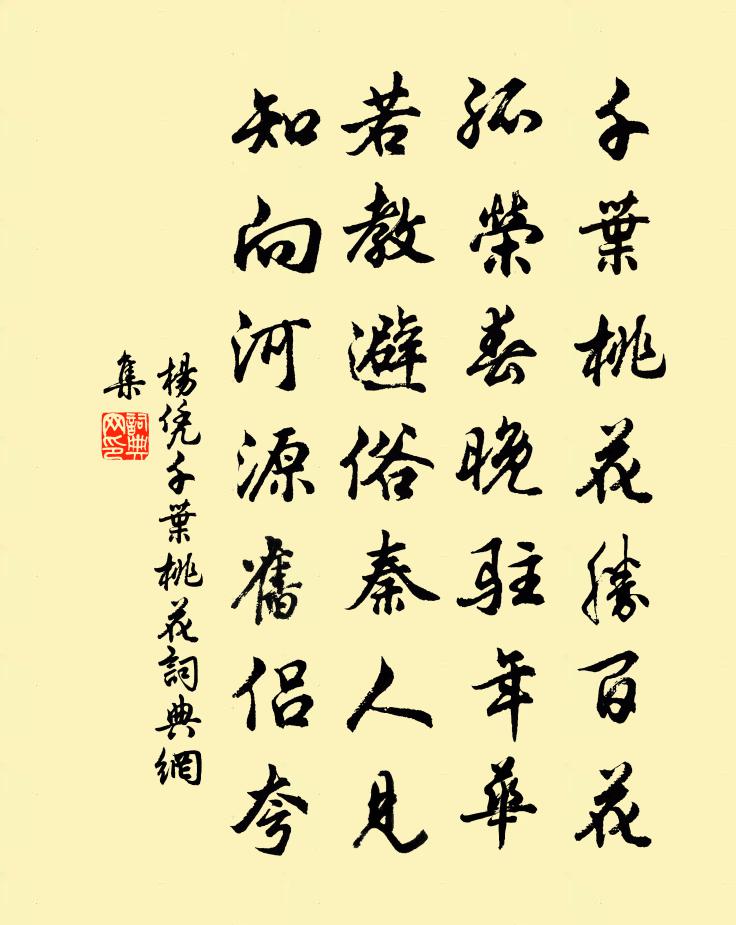 千葉桃花勝百花
孤榮春晚駐年華
若教避俗秦人見
知向河源舊侶夸
楊凭千葉桃花詞典網
集
詞典
网印